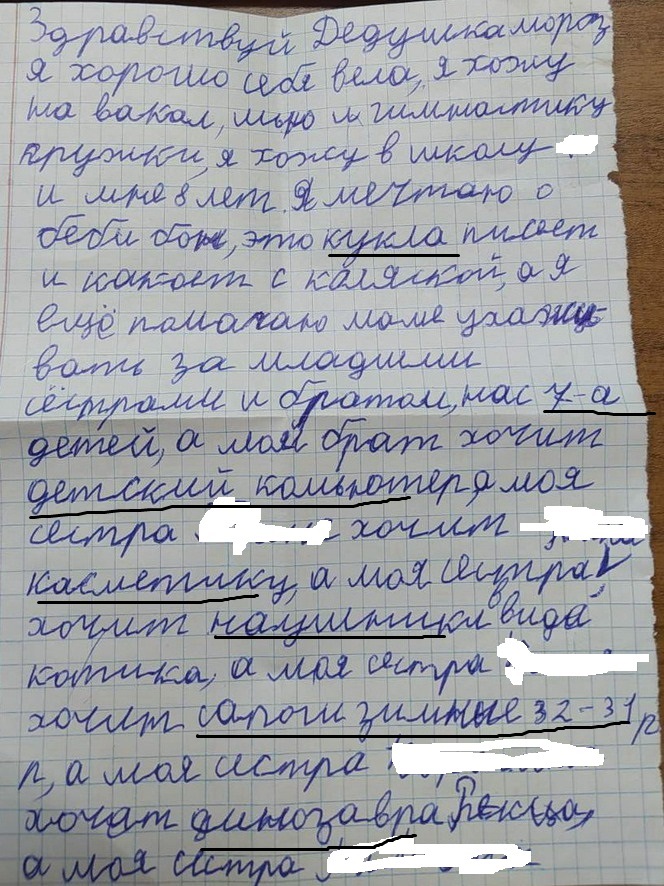 Здравствуй Дедушка мороз
я хорошо себя вела, я хожу
на вакал, и гимнастику
кружки, я хожу в школу
и мне 8 лет. Я мечтаю о
беби бон, это кукла писает
и какает с каляской, а я
ещё памагаю маме ухажу-
вать за младшими
сёстрами и братом, нас 7-а
детей, а мой брат хочит
детский компьютер, а моя
сестра хочит
касметику, а моя сестра
хочит наушники ввида
котика, а моя сестра
хочит сапоги зимные 32-31 р
р, а моя сестра
хочат динозавра Рекса,
а моя сестра